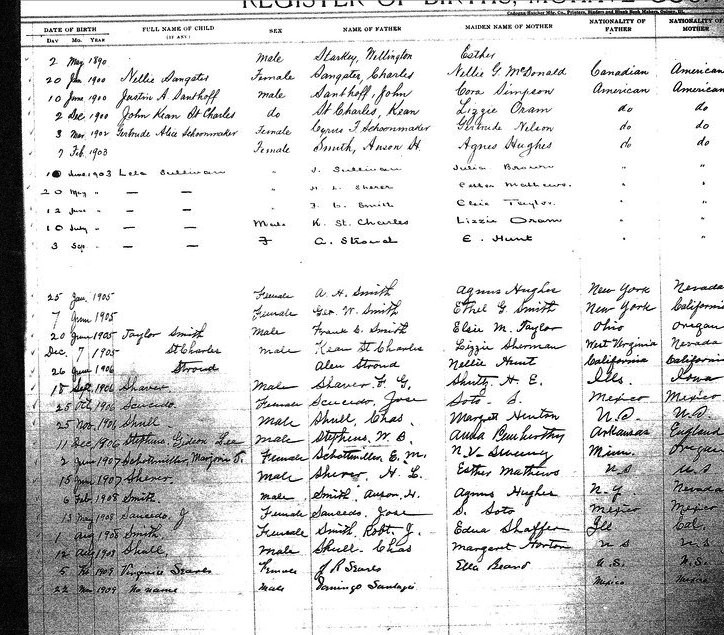 REGISTER OF BIRTHS, MOHAVE COU
DATE OF BIRTH FULL NAME OF CHILD SEX NAME OF FATHER MAIDEN NAME OF MOTHER NATIONALITY OF NATIONALITY OF
DAY MO. YEAR (IF ANY) FATHER MOTHER
2 May 1890 Male Starkey, Wellington Esther
20 Jan 1900 Nellie Sangster Female Sangster, Charles Nellie G. McDonald Canadian American
10 June 1900 Justin A Santhoff male Santhoff, John Cora Simpson American American
2 Dec 1900 John Kean St Charles do St Charles, Kean Lizzie Oram do do
3 Mar 1902 Gertrude Alice Schoonmaker Female Cyrus F Schoonmaker Gertrude Nelson do do
7 Feb 1903 Female Smith, Anson H. Agnes Hughes do do
1903 Lola Sullivan " J. Sullivan Julia Brown " "
20 May " — — " H. L. Sherer Esther Mathews. " "
12 June " — — " F. L. Smith Elsie Taylor. " "
10 July " — — Male K. St. Charles Lizzie Oram " "
3 Sep. " — — F A. Stroud E. Hunt " "
25 Jan. 1905 Female A. H. Smith Agnes Hughes New York Nevada
7 June 1905 Female Geo. W. Smith Ethel G. Smith New York California
20 June 1905 Taylor Smith Male Frank L. Smith Elsie M. Taylor Ohio Oregon
Dec. 7 1905 St Charles male Kean St Charles Lizzie Sherman West Virginia Nevada
26 June 1906 Stroud Alen Stroud Nellie Hunt California California
18 Sept 1906 Shaver Male Shaver, F. G. H. E. Ills. Iowa
25 Oct 1906 Saucedo. Female Saucedo, Jose Soto - S. Mexico Mexico
25 Nov. 1906 Shull Male Shull, Chas. Margret U.S. U.S.
11 Dec 1906 Stephens, Gideon Lee male Stephens, W. B. Anna Arkansas England
2 June 1907 Schottmiller, Marjorie F. Female Schottmiller, E. M. N. V. Sweeny Minn. Oregon
15 June 1907 Sherer. Male Sherer, H. L. Esther Mathews U S U.S
6 Feb 1908 Smith. male Smith, Anson, H. Agnes Hughes N.Y. Nevada
13 May 1908 Saucedo, J Female Saucedo, Jose S. Soto Mexico Mexico
1 Aug 1908 Smith Female Smith, Robt. J. Edna Shaffer Ills Cal.
12 Aug 1908 Shull. Male Shull Chas Margaret Horton U S U.S.
5 Feb 1909 Virginia Seares Female J R Seares Ella Beard U.S. U.S.
22 Mar 1909 No name Male Domingo Mexico Mexico